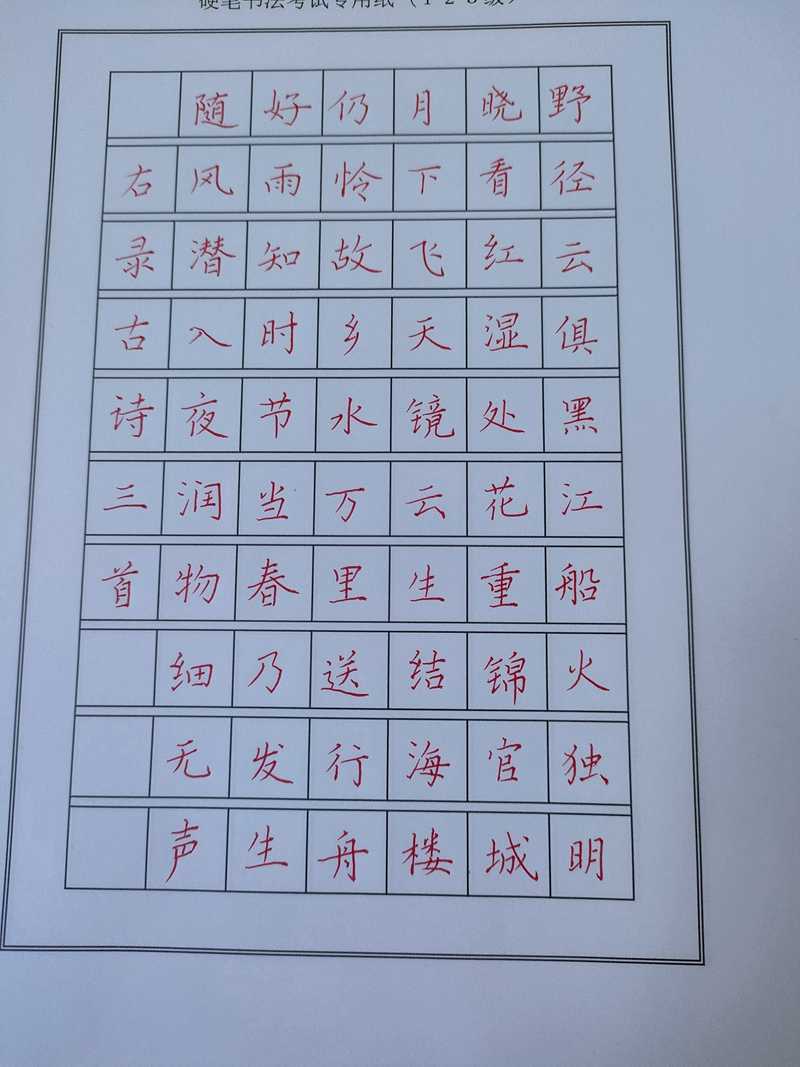 硬笔书法考试专用纸（1 2 3级）
野径云俱黑江船火独明
晓看红湿处花重锦官城
月下飞天镜云生结海楼
仍怜故乡水万里送行舟
好雨知时节当春乃发生
随风潜入夜润物细无声
右录古诗三首